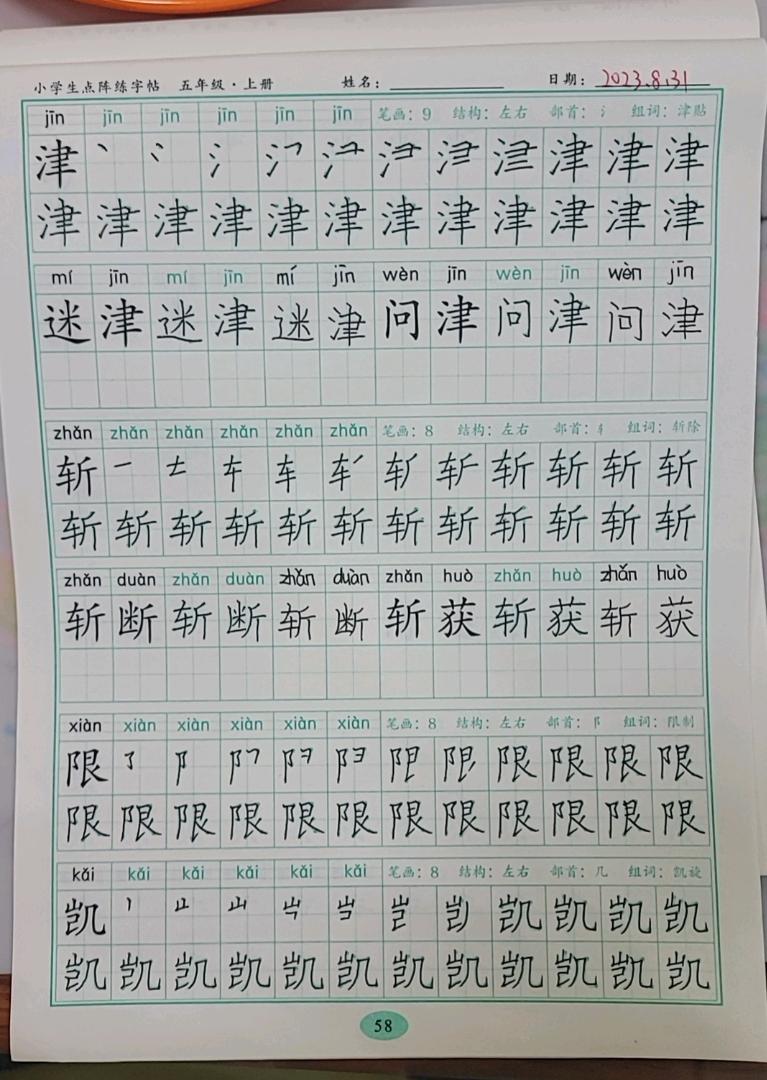 小学生点阵练字帖 五年级·上册 姓名: 日期: 2023.8.31
jīn jīn jīn jīn jīn jīn 笔画: 9 结构: 左右 部首: 氵 组词: 津贴
津 津 津 津
津 津 津 津 津 津 津 津 津 津 津 津
mí jīn mí jīn mí jīn wèn jīn wèn jīn wèn jīn
迷 津 迷 津 迷 津 问 津 问 津 问 津
zhǎn zhǎn zhǎn zhǎn zhǎn zhǎn 笔画: 8 结构: 左右 部首: 车 组词: 斩除
斩 斩 斩 斩 斩
斩 斩 斩 斩 斩 斩 斩 斩 斩 斩 斩 斩
zhǎn duàn zhǎn duàn zhǎn duàn zhǎn huò zhǎn huò zhǎn huò
斩 断 斩 断 斩 断 斩 获 斩 获 斩 获
xiàn xiàn xiàn xiàn xiàn xiàn 笔画: 8 结构: 左右 部首: 阝 组词: 限制
限 限 限 限 限
限 限 限 限 限 限 限 限 限 限 限 限
kǎi kǎi kǎi kǎi kǎi kǎi 笔画: 8 结构: 左右 部首: 几 组词: 凯旋
凯 凯 凯 凯 凯
凯 凯 凯 凯 凯 凯 凯 凯 凯 凯 凯 凯
58